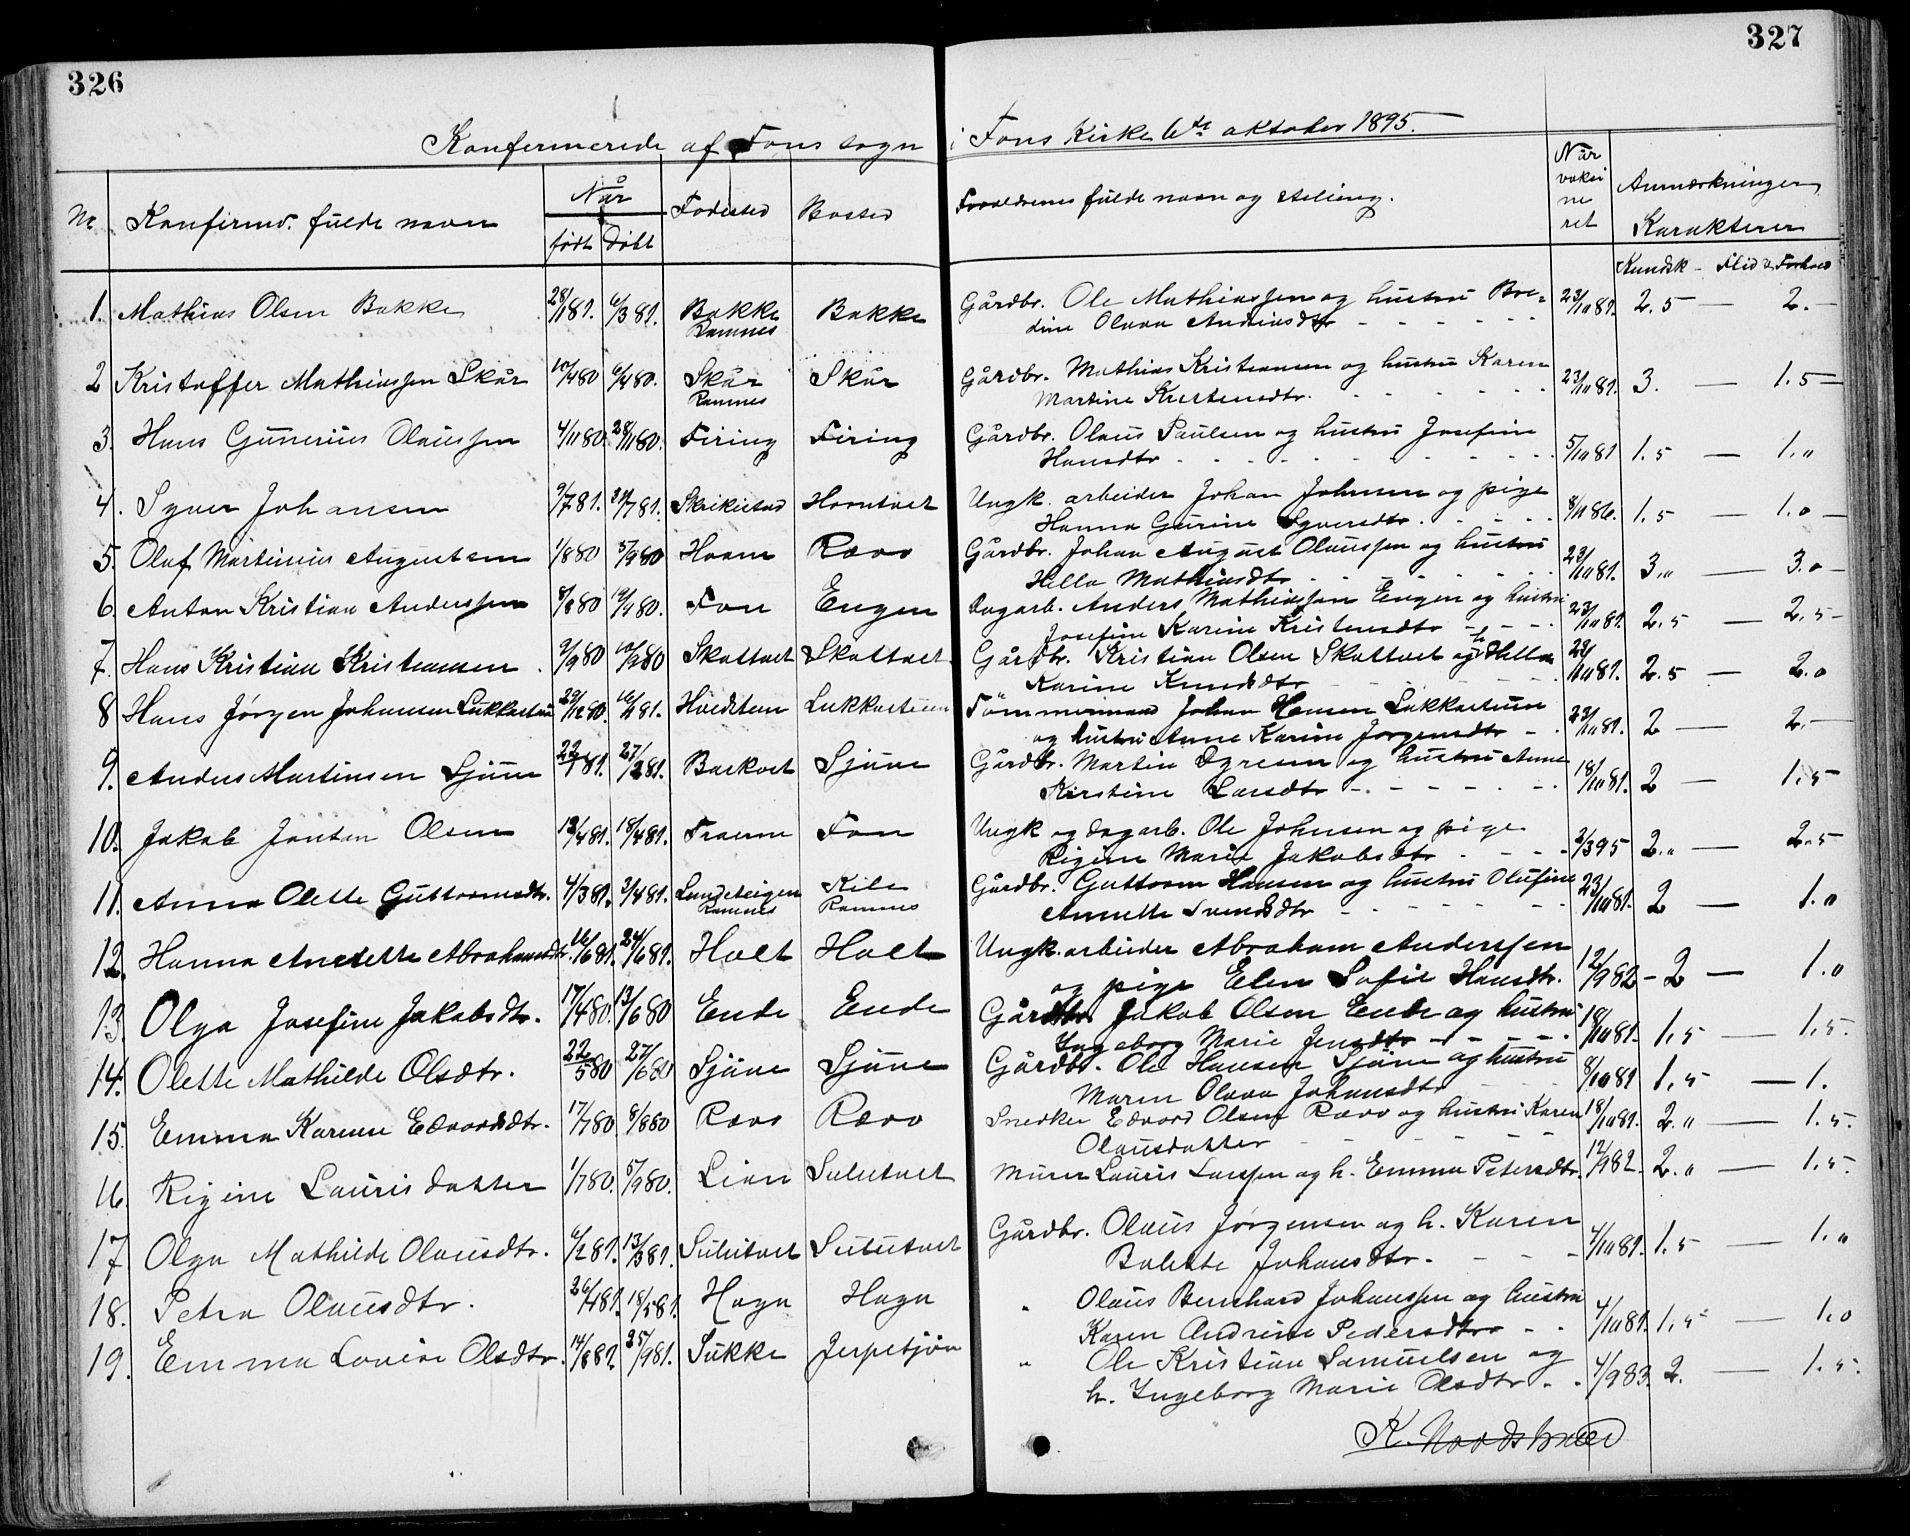 326
327
Konfirmerede af Fons sogn i Fons Kirke 6te oktober 1895.
No Konfirmd. fulde navn Når født døbt Fødested Bosted Forældrenes fulde navn og stilling. Når vaksineret Anmærkninger Karakterer
Kundsk - Flid & Forhold
1. Mathias Olsen Bakke 28/181. 6/381. Bakke Ramnes Bakke Gårdbr. Ole Mathiassen og hustru Bre-
dine Olava Andreasdtr 23/1081. 2.5 — 2. —
2 Kristoffer Mathiassen Skår 6/480. Skår Ramnes Skår Gårdbr. Mathias Kristiansen og hustru Karen
Martine Kristensdtr. 23/1081. 3. — 1.5 —
3. Hans Gunerius Olaussen 4/1180. 28/1180. Firing Firing Gårdbr. Olaus Paulsen og hustru Josefine
Hansdtr 5/1081 1.5 — 1."
4. Syver Johansen 9/781. 31/781. Skrikestad Horntvet Ungk. arbeider Johan Johnsen og pige
Hanna Gurine Syversdtr. 1.5 — 1.0 —
5. Olaf Martinius Augustsen 1/880 5/980 Hoam Rævo Gårdbr. Johan August Olaussen og hustru
Hella Mathiasdtr 23/1081. 3." — 3.0 —
6. Anton Kristian Anderssen 8/880 Fon Engen Dagarb. Anders Mathiassen Engen og hustru
Josefine Karine Kristensdtr 23/1081. 2.5 — 2.5 —
7. Hans Kristian Kristiansen 2/980 Skattvet Skattvet Gårdbr. Kristian Olsen Skattvet og h. Hella
Karine Knudsdtr 23/1081. 2.5 — 2.0
8 Hans Jørgen Johansen Lukkastuen 29/1280. Hvidsten Lukkastuen Tømmermand Johan Hansen Lukkastuen
og hustru Anne Karine Jørgensdtr 23/1081. 2 — 2. —
9. Anders Martinsen Sjúne 22/181. 27/281. Bækvet Sjúne Gårdbr. Martin Syresen og hustru Anne
Kirstine Larsdtr 18/1081. 2 — 1.5 —
10. Jakob Jontan Olsen 13/481. 18/481. Fraum Fon Ungk og dagarb. Ole Johnsen og pige
Rigine Marie Jakobsdtr 2/395 2." — 2.5
11. Anna Olette Guttormsdtr. 4/381. 3/481. Lundeteigen Ramnes Kile Ramnes Gårdbr. Guttorm Hansen og hustru Olufine
Annette Svendsdtr 23/1081. 2 — 1.0
12. Hanna Andette Abrahamsdtr. 16/681. 24/681. Holt Holt Ungk. arbeider Abraham Anderssen
og pige Elen Sofie Hansdtr. 12/982 - 2 — 1.0
13. Olga Josefine Jakobsdtr. 17/480. 13/680 Ende Ende Gårdbr. Jakob Olsen Ende og hustru
Ingeborg Marie Jensdtr 18/1081. 1.5 — 1.5.
14. Olette Mathilde Olsdtr. 22/580 27/680 Sjúne Sjúne Gårdbr. Ole Hansen Sjúne og hustru
Maren Olava Johansdtr 8/1081 1.5 — 1.
15. Emma Karene Edvardsdtr. 17/780 8/880 Rævo Rævo Snedker Edvard Olsen Rævo og hustru Karen
Olausdatter 18/1081. 2." — 1.5.
16. Rigine Laurisdatter 1/780. 5/980. Lian Sulutvet Murer Lauris Larssen og h. Emma Petersdtr. 12/982. 2.0 — 1.5.
17 Olga Mathilde Olausdtr. 6/281. 13/381. Sulutvet Sulutvet Gårdbr. Olaus Jørgensen og h. Karen
Bolette Johansdtr. 4/1081. 1.5 — 1."
18. Petra Olausdtr. 26/481. 18/581. Haga Haga " Olaus Bernhard Johanssen og hustru
Karen Andrine Pedersdtr 4/1081. 1.5 — 1.0
19. Emma Lovise Olsdtr. 14/881. 25/981. Sukke Jerpetjøn " Ole Kristian Samuelsen og
h. Ingeborg Marie Olsdtr 4/983. 2. — 1.5.